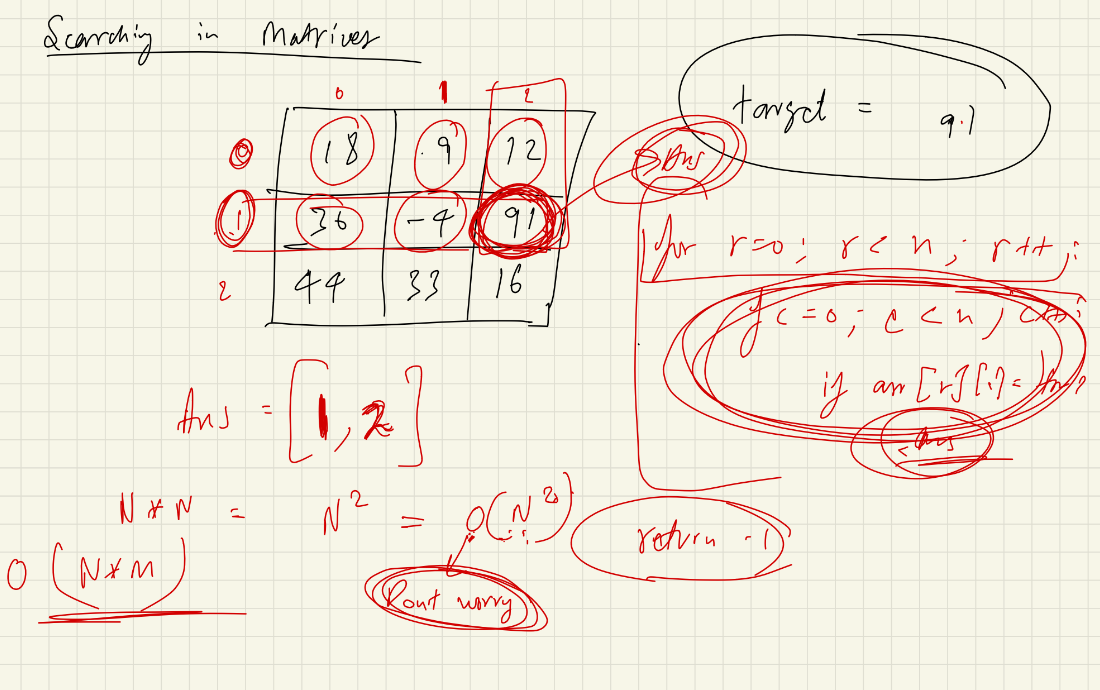 Searching in Matrives
target = 91
0 1 2
0 18 9 12
1 36 -4 91
2 44 33 16
Ans
for r=0; r < n; r++;
f c=0; c < n; c++;
if arr [r][i] =
Ans
return -1
Ans = [1, 2]
N * N = N² = O(N²)
O (N*M)
Dont worry